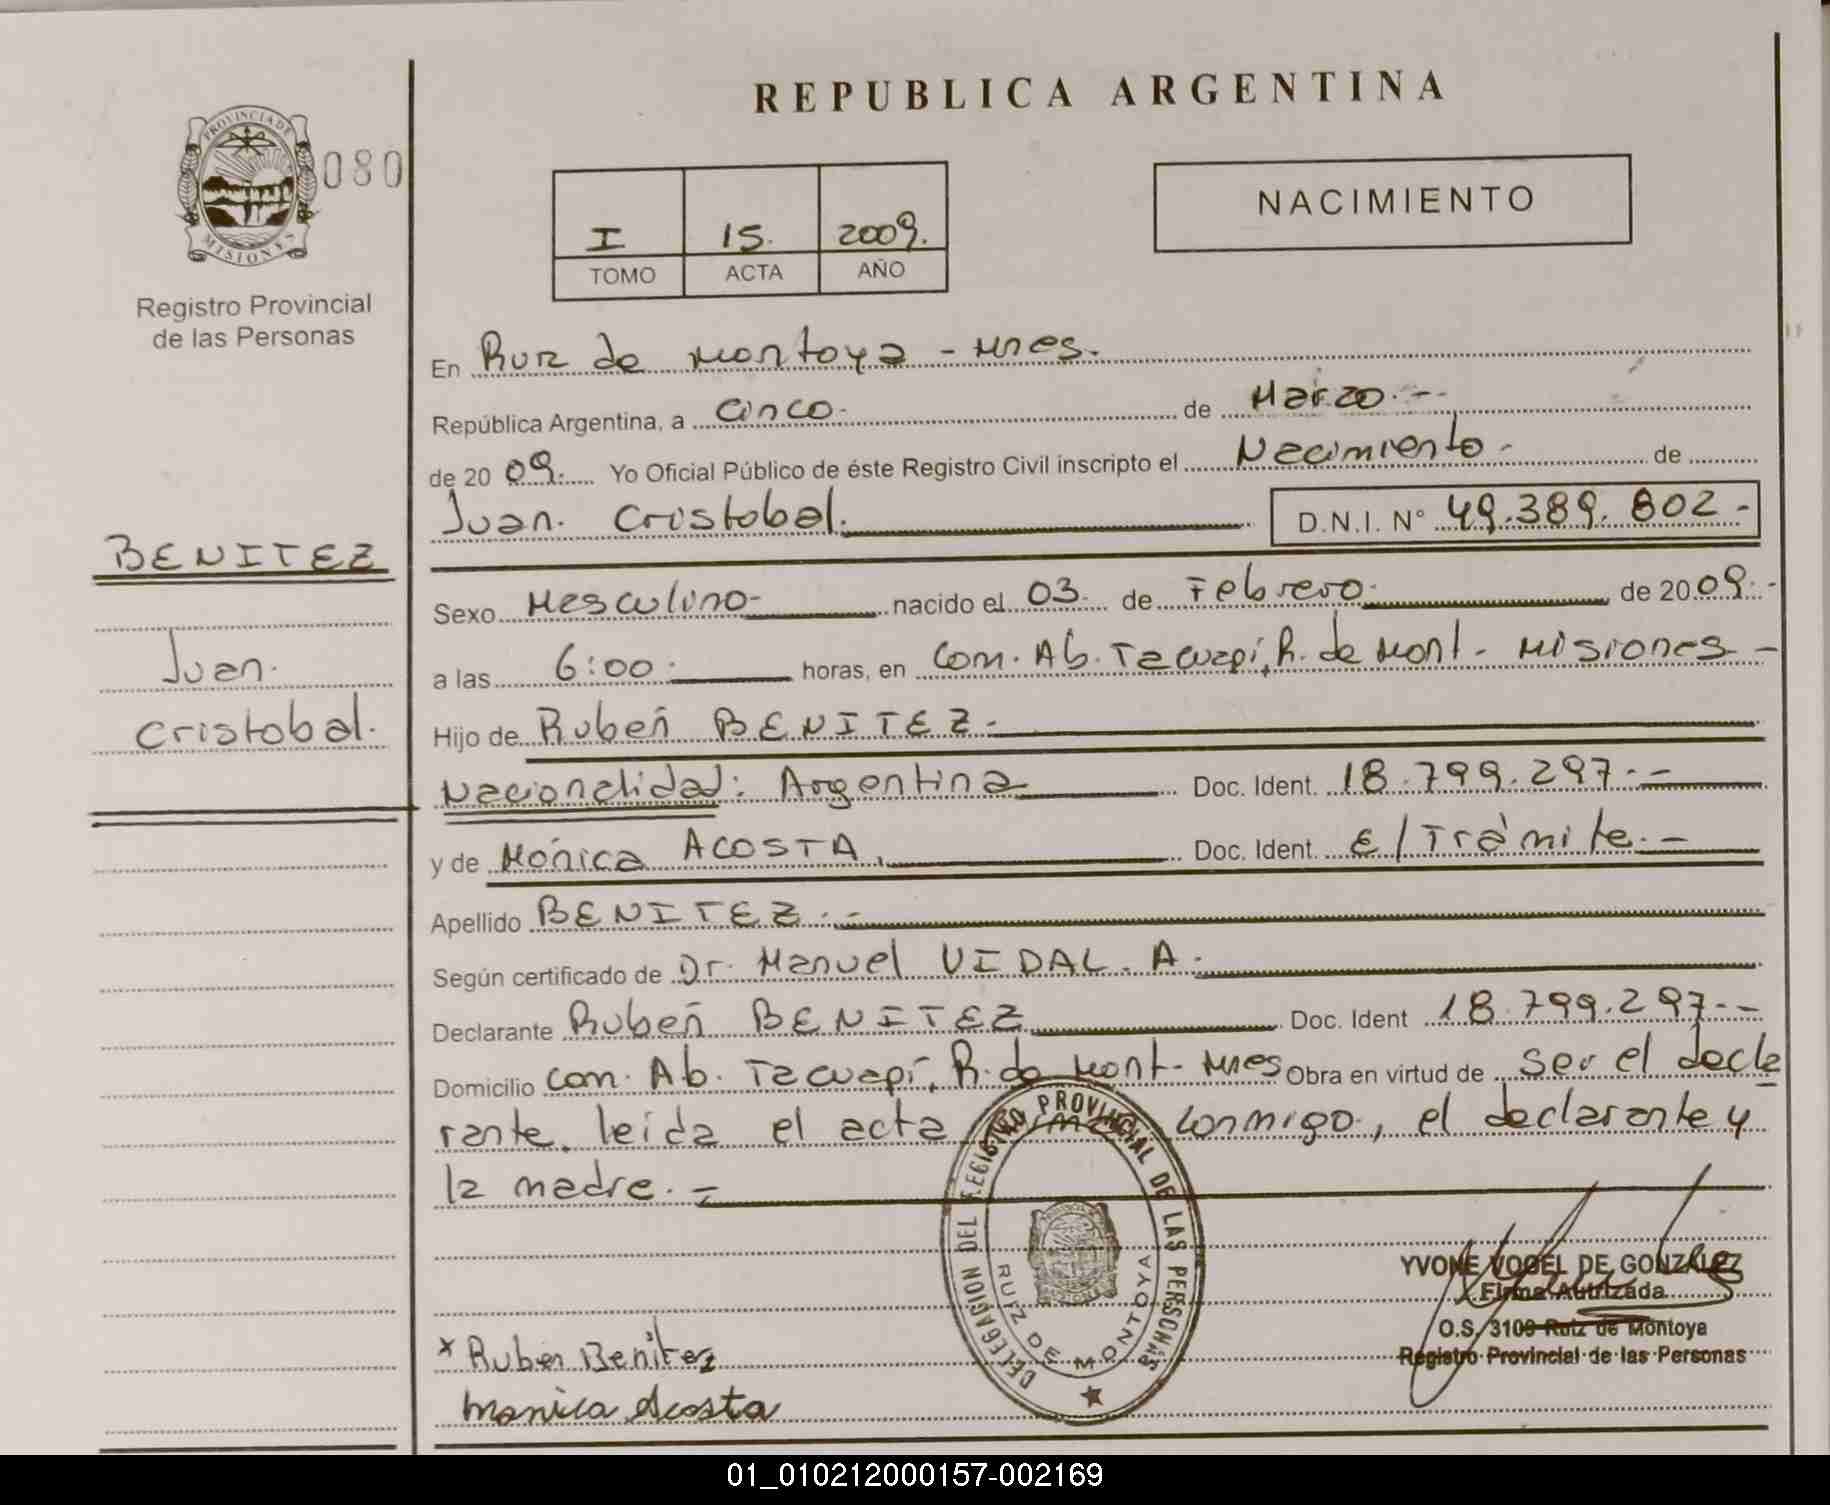 REPUBLICA ARGENTINA
PROVINCIA DE
MISIONES
080
Registro Provincial
de las Personas
I 15. 2009.
TOMO ACTA AÑO
NACIMIENTO
En Ruiz de Montoya - Mnes.
República Argentina, a cinco.- de Marzo.--
de 2009. Yo Oficial Público de éste Registro Civil inscripto el Nacimiento - de
Juan. Cristobal. D.N.I. N° 49.389.802.-
BENITEZ
Juan.
Cristobal.
Sexo Masculino- nacido el 03. de Febrero. de 2009.-
a las 6:00. horas, en Com. Ab. Tacuapí, R. de Mont - Misiones -
Hijo de Rubén BENITEZ.-
Nacionalidad: Argentina Doc. Ident. 18.799.297.-
y de Mónica ACOSTA, Doc. Ident. E/Trámite.-
Apellido BENITEZ.-
Según certificado de Dr. Manuel VIDAL. A.
Declarante Rubén BENITEZ Doc. Ident 18.799.297.-
Domicilio Com. Ab. Tacuapí, R. de Mont - Mnes Obra en virtud de ser el decla
rante. leída el acta conmigo, el declarante y
la madre.-
DELEGACION DEL REGISTRO PROVINCIAL DE LAS PERSONAS
RUIZ DE MONTOYA
YVONE VOGEL DE GONZALEZ
Firma Autrizada
O.S. 3109 Ruiz de Montoya
Registro Provincial de las Personas
* Ruben Benitez
Monica Acosta
01_010212000157-002169